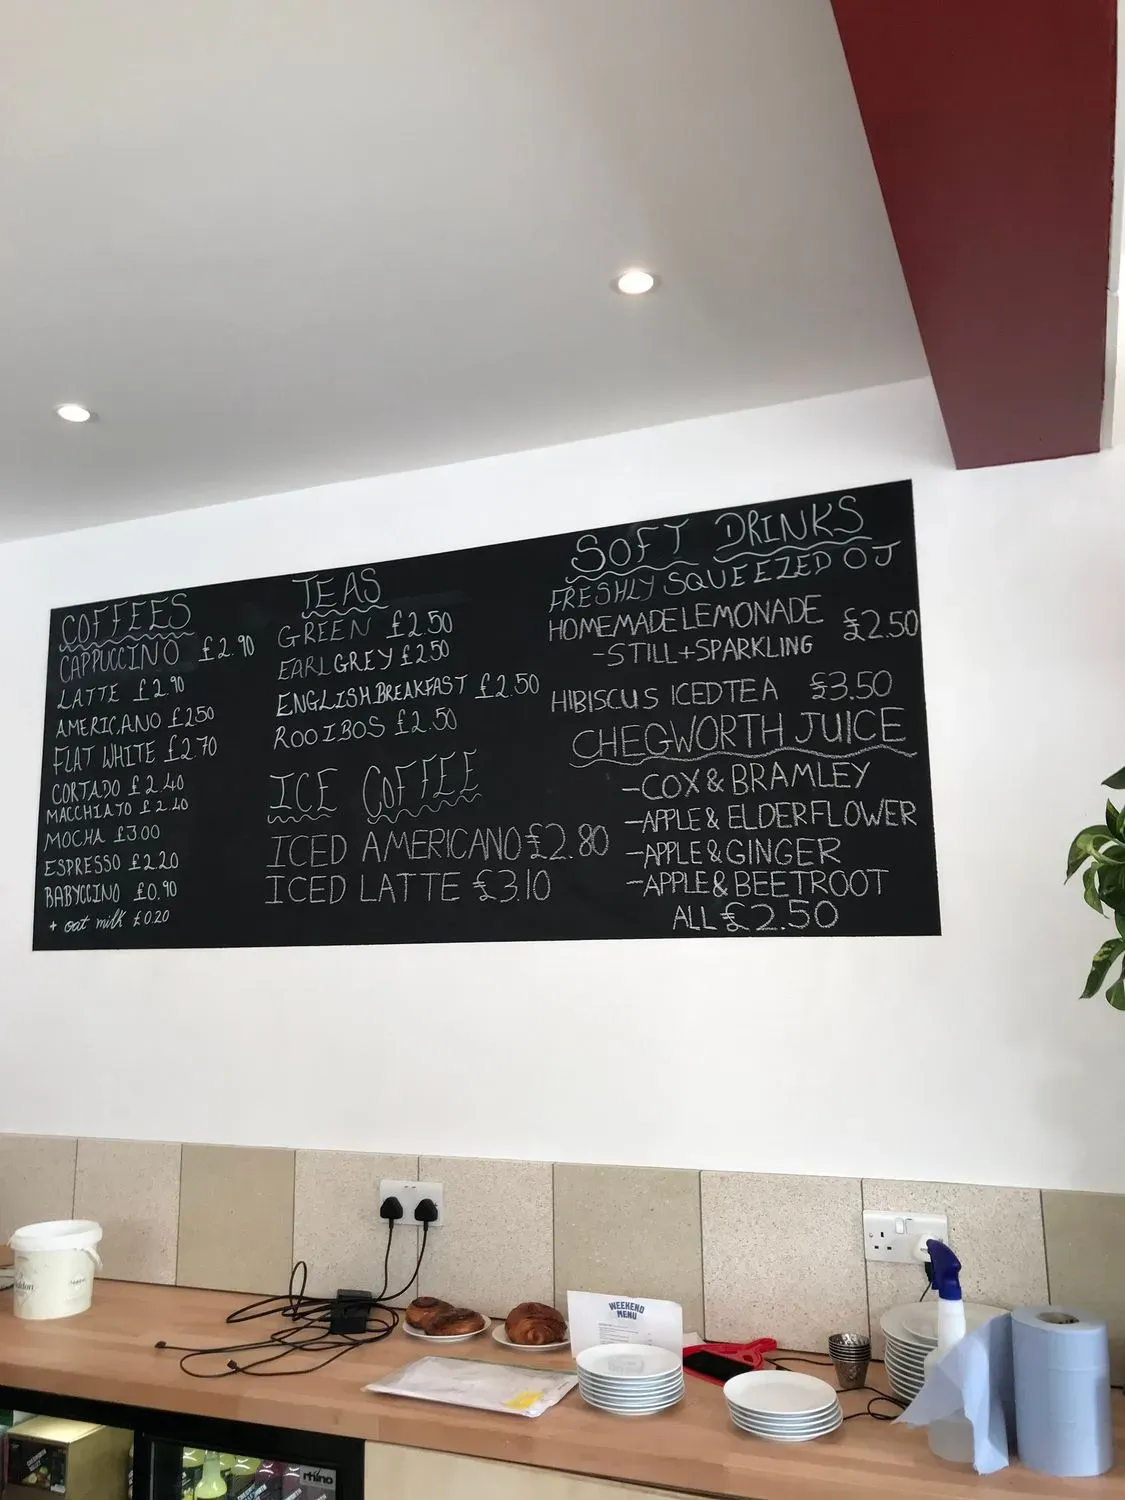 COFFEES
CAPPUCCINO £2.90
LATTE £2.90
AMERICANO £250
FLAT WHITE £2.70
CORTADO £2.40
MACCHIATO £2.40
MOCHA £3.00
ESPRESSO £2.20
BABYCCINO £0.90
+ oat milk £0.20
TEAS
GREEN £2.50
EARL GREY £2.50
ENGLISH BREAKFAST £2.50
ROOIBOS £2.50
ICE COFFEE
ICED AMERICANO £2.80
ICED LATTE £3.10
SOFT DRINKS
FRESHLY SQUEEZED OJ
HOMEMADE LEMONADE £2.50
-STILL+SPARKLING
HIBISCUS ICED TEA £3.50
CHEGWORTH JUICE
-COX & BRAMLEY
-APPLE & ELDERFLOWER
-APPLE & GINGER
-APPLE & BEETROOT
ALL £2.50
WEEKEND
MENU
rhino